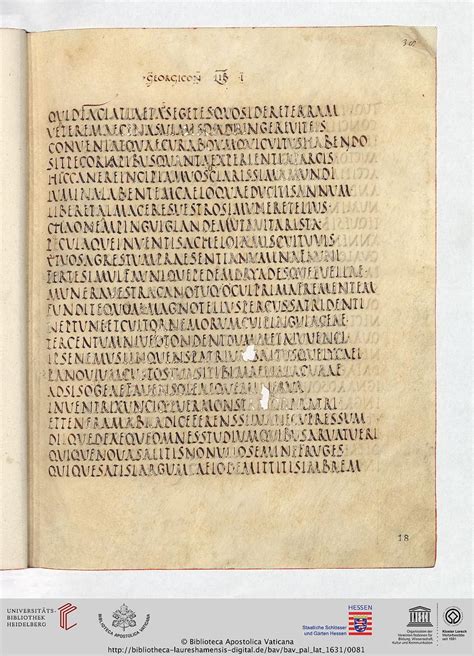 GEORGICON LIB I
QUIDFACIATLAETASSEGETESQUOSIDERETERRAM
VERTEREMAECENASULMISQ·ADIUNGEREVITEIS
CONVENIATQUAECURABOUMQUICULTUSHABENDO
SITPECORIAPIBUSQUANTAEXPERIENTIAPARCIS
HICCANEREINCIPIAMVOSCLARISSIMAMUNDI
LUMINALABENTEMCAELOQUAEDUCITISANNUM
LIBERETALMACERESVESTROSIMUNERETELLUS
CHAONIAMPINGUIGLANDEMMUTAVITARISTA
POCULAQUEINVENTISACHELOIAMISCUITUVIS
ETVOSAGRESTUMPRAESENTIANUMINAFAUNI
FERTESIMULFAUNIQUEPEDEMDRYADESQUEPUELLAE
MUNERAVESTRACANOTUQ·OCUIPRIMAFREMENTEM
FUNDITEQUOMMAGNOTELLUSPERCUSSATRIDENTI
NEPTUNEETCULTORNEMORUMCUIPINGUIACEAE
TERCENTUMNIVEITONDENTDUMETAIUVENCI
IPSENEMUSLINQUENSPATRIUM ALTUSQUELYCAEI
PANOVIUMCUSTOSTUASITIBIMAENALACURAE
ADSISOTEGEAEEFAVENSOLEAEQUEMINERVA
INVENTRIXUNCIQ·PUERMONST ATORARATRI
ETTENERAMABRADICEFERENSSILVANECUPRESSUM
DIIQUEDEAEQUEOMNESSTUDIUMQUIBUSARVATUERI
QUIQUENOVASALITISNONULLOSEMINEFRUGES
QUIQUESATISLARGUMCAELODEMITTITISIMBREM
18
UNIVERSITÄTS-
BIBLIOTHEK
HEIDELBERG
Staatliche Schlösser
und Gärten Hessen
HESSEN
Kloster Lorsch
© Biblioteca Apostolica Vaticana
http://bibliotheca-laureshamensis-digital.de/bav/bav_pal_lat_1631/0081